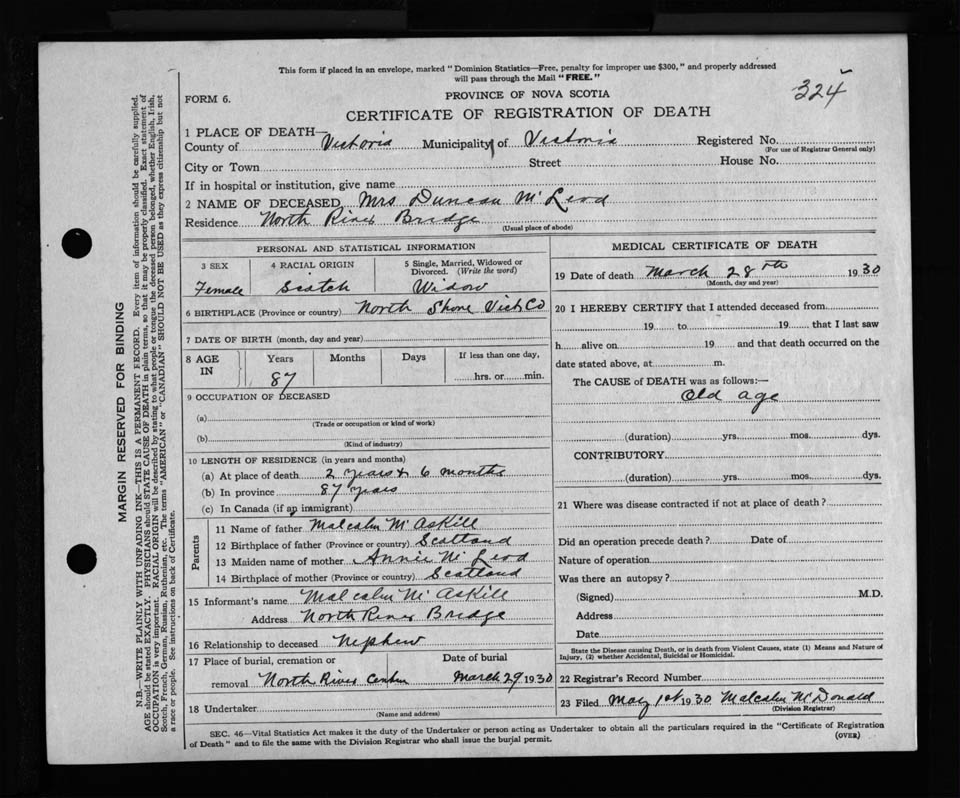 This form if placed in an envelope, marked "Dominion Statistics—Free, penalty for improper use $300," and properly addressed
will pass through the Mail "FREE."
324
FORM 6.
PROVINCE OF NOVA SCOTIA
CERTIFICATE OF REGISTRATION OF DEATH
1 PLACE OF DEATH—
County of Victoria Municipality of Victoria Registered No.
(For use of Registrar General only)
City or Town Street House No.
If in hospital or institution, give name
2 NAME OF DECEASED, Mrs Duncan McLeod
Residence North River Bridge
(Usual place of abode)
PERSONAL AND STATISTICAL INFORMATION
3 SEX 4 RACIAL ORIGIN 5 Single, Married, Widowed or
Divorced. (Write the word)
Female Scotch Widow
6 BIRTHPLACE (Province or country) North Shore Vict Co
7 DATE OF BIRTH (month, day and year)
8 AGE IN Years Months Days If less than one day,
87 hrs. or min.
9 OCCUPATION OF DECEASED
(a)
(Trade or occupation or kind of work)
(b)
(Kind of industry)
10 LENGTH OF RESIDENCE (in years and months)
(a) At place of death 2 years & 6 months
(b) In province 87 years
(c) In Canada (if an immigrant)
Parents
11 Name of father Malcolm McAskill
12 Birthplace of father (Province or country) Scotland
13 Maiden name of mother Annie McLeod
14 Birthplace of mother (Province or country) Scotland
15 Informant's name Malcolm McAskill
Address North River Bridge
16 Relationship to deceased Nephew
17 Place of burial, cremation or Date of burial
removal North River March 29 1930
18 Undertaker
(Name and address)
MEDICAL CERTIFICATE OF DEATH
19 Date of death March 28th 1930
(Month, day and year)
20 I HEREBY CERTIFY that I attended deceased from
19 to 19 that I last saw
h alive on 19 and that death occurred on the
date stated above, at m.
The CAUSE of DEATH was as follows:—
Old age
(duration) yrs. mos. dys.
CONTRIBUTORY
(duration) yrs. mos. dys.
21 Where was disease contracted if not at place of death?
Did an operation precede death? Date of
Nature of operation
Was there an autopsy?
(Signed) M.D.
Address
Date
State the Disease causing Death, or in death from Violent Causes, state (1) Means and Nature of
Injury, (2) whether Accidental, Suicidal or Homicidal.
22 Registrar's Record Number
23 Filed May 1st 1930 Malcolm McDonald
(Division Registrar)
SEC. 46—Vital Statistics Act makes it the duty of the Undertaker or person acting as Undertaker to obtain all the particulars required in the "Certificate of Registration
of Death" and to file the same with the Division Registrar who shall issue the burial permit. (OVER)
MARGIN RESERVED FOR BINDING
N.B.—WRITE PLAINLY WITH UNFADING INK—THIS IS A PERMANENT RECORD. Every item of information should be carefully supplied.
AGE should be stated EXACTLY. PHYSICIANS should STATE CAUSE OF DEATH in plain terms, so that it may be properly classified. Exact statement of
OCCUPATION is very important. RACIAL ORIGIN will be described by stating to what people or tongue the deceased person belonged, whether English, Irish,
Scotch, French, German, Russian, Ruthenian, etc. The terms "AMERICAN" or "CANADIAN" SHOULD NOT BE USED as they express citizenship but not
a race or people. See instructions on back of Certificate.